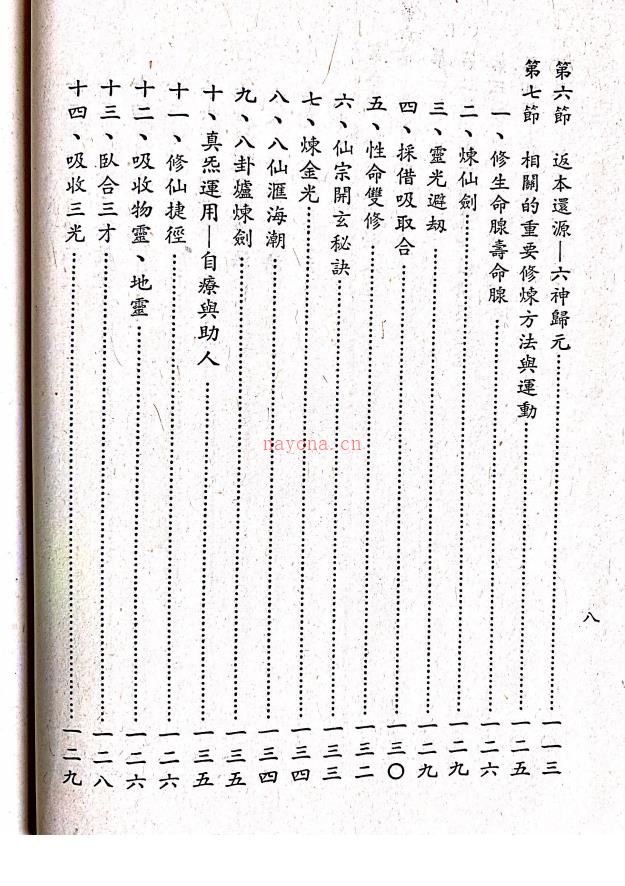 第六節 返本還源—六神歸元……一一三
第七節 相關的重要修煉方法與運動……一二五
一、修生命腺壽命腺……一二六
二、煉仙劍……一二九
三、靈光避劫……一二九
四、採借吸取合……一三〇
五、性命雙修……一三二
六、仙宗開玄秘訣……一三三
七、煉金光……一三四
八、八仙滙海潮……一三四
九、八卦爐煉劍……一三五
十、真炁運用—自療與助人……一三五
十一、修仙捷徑……一二六
十二、吸收物靈、地靈……一二六
十三、臥合三才……一二八
十四、吸收三光……一二九
八
nayona.cn